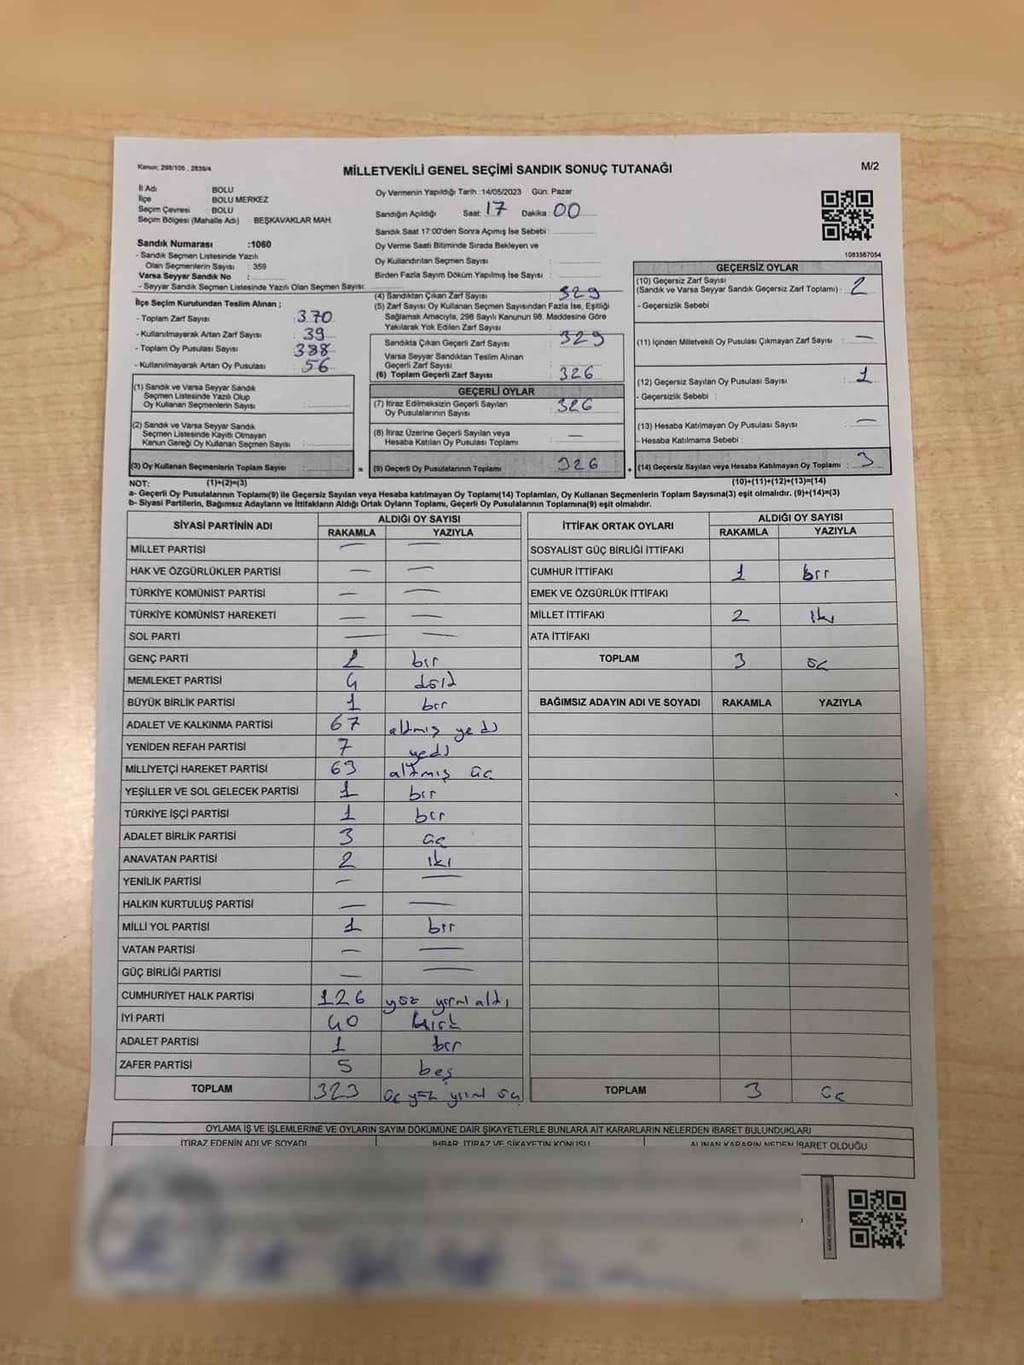 Kanun: 298/105 , 2839/4
MİLLETVEKİLİ GENEL SEÇİMİ SANDIK SONUÇ TUTANAĞI
M/2
İl Adı BOLU
İlçe BOLU MERKEZ
Seçim Çevresi BOLU
Seçim Bölgesi (Mahalle Adı) BEŞKAVAKLAR MAH.
Sandık Numarası :1060
- Sandık Seçmen Listesinde Yazılı
Olan Seçmenlerin Sayısı : 359
Varsa Seyyar Sandık No :
- Seyyar Sandık Seçmen Listesinde Yazılı Olan Seçmen Sayısı :
İlçe Seçim Kurulundan Teslim Alınan ;
- Toplam Zarf Sayısı : 370
- Kullanılmayarak Artan Zarf Sayısı : 39
- Toplam Oy Pusulası Sayısı : 388
- Kullanılmayarak Artan Oy Pusulası : 56
(1) Sandık ve Varsa Seyyar Sandık
Seçmen Listesinde Yazılı Olup
Oy Kullanan Seçmenlerin Sayısı :
(2) Sandık ve Varsa Seyyar Sandık
Seçmen Listesinde Kayıtlı Olmayan
Kanun Gereği Oy Kullanan Seçmen Sayısı :
(3) Oy Kullanan Seçmenlerin Toplam Sayısı :
Oy Vermenin Yapıldığı Tarih :14/05/2023 Gün: Pazar
Sandığın Açıldığı Saat: 17 Dakika 00
Sandık Saat 17:00'den Sonra Açılmış İse Sebebi :
Oy Verme Saati Bitiminde Sırada Bekleyen ve
Oy Kullandırılan Seçmen Sayısı :
Birden Fazla Sayım Döküm Yapılmış İse Sayısı :
(4) Sandıktan Çıkan Zarf Sayısı : 329
(5) Zarf Sayısı Oy Kullanan Seçmen Sayısından Fazla İse, Eşitliği
Sağlamak Amacıyla, 298 Sayılı Kanunun 98. Maddesine Göre
Yakılarak Yok Edilen Zarf Sayısı :
Sandıkta Çıkan Geçerli Zarf Sayısı : 329
Varsa Seyyar Sandıktan Teslim Alınan
Geçerli Zarf Sayısı :
(6) Toplam Geçerli Zarf Sayısı : 326
GEÇERLİ OYLAR
(7) İtiraz Edilmeksizin Geçerli Sayılan
Oy Pusulalarının Sayısı : 326
(8) İtiraz Üzerine Geçerli Sayılan veya
Hesaba Katılan Oy Pusulası Toplamı : —
= (9) Geçerli Oy Pusulalarının Toplamı : 326
1083567054
GEÇERSİZ OYLAR
(10) Geçersiz Zarf Sayısı
(Sandık ve Varsa Seyyar Sandık Geçersiz Zarf Toplamı) : 2
- Geçersizlik Sebebi :
(11) İçinden Milletvekili Oy Pusulası Çıkmayan Zarf Sayısı : —
(12) Geçersiz Sayılan Oy Pusulası Sayısı : 1
- Geçersizlik Sebebi :
(13) Hesaba Katılmayan Oy Pusulası Sayısı : —
- Hesaba Katılmama Sebebi :
+ (14) Geçersiz Sayılan veya Hesaba Katılmayan Oy Toplamı : 3
NOT: (1)+(2)=(3) (10)+(11)+(12)+(13)=(14)
a- Geçerli Oy Pusulalarının Toplamı(9) ile Geçersiz Sayılan veya Hesaba katılmayan Oy Toplamı(14) Toplamları, Oy Kullanan Seçmenlerin Toplam Sayısına(3) eşit olmalıdır. (9)+(14)=(3)
b- Siyasi Partilerin, Bağımsız Adayların ve İttifakların Aldığı Ortak Oyların Toplamı, Geçerli Oy Pusulalarının Toplamına(9) eşit olmalıdır.
SİYASİ PARTİNİN ADI ALDIĞI OY SAYISI
RAKAMLA YAZIYLA
MİLLET PARTİSİ — —
HAK VE ÖZGÜRLÜKLER PARTİSİ — —
TÜRKİYE KOMÜNİST PARTİSİ — —
TÜRKİYE KOMÜNİST HAREKETİ — —
SOL PARTİ — —
GENÇ PARTİ 1 bir
MEMLEKET PARTİSİ 4 dört
BÜYÜK BİRLİK PARTİSİ 1 bir
ADALET VE KALKINMA PARTİSİ 67 altmış yedi
YENİDEN REFAH PARTİSİ 7 yedi
MİLLİYETÇİ HAREKET PARTİSİ 63 altmış üç
YEŞİLLER VE SOL GELECEK PARTİSİ 1 bir
TÜRKİYE İŞÇİ PARTİSİ 1 bir
ADALET BİRLİK PARTİSİ 3 üç
ANAVATAN PARTİSİ 2 iki
YENİLİK PARTİSİ — —
HALKIN KURTULUŞ PARTİSİ — —
MİLLİ YOL PARTİSİ 1 bir
VATAN PARTİSİ — —
GÜÇ BİRLİĞİ PARTİSİ — —
CUMHURİYET HALK PARTİSİ 126 yüz yirmi altı
İYİ PARTİ 40 kırk
ADALET PARTİSİ 1 bir
ZAFER PARTİSİ 5 beş
TOPLAM 323 üç yüz yirmi üç
İTTİFAK ORTAK OYLARI ALDIĞI OY SAYISI
RAKAMLA YAZIYLA
SOSYALİST GÜÇ BİRLİĞİ İTTİFAKI
CUMHUR İTTİFAKI 1 bir
EMEK VE ÖZGÜRLÜK İTTİFAKI
MİLLET İTTİFAKI 2 iki
ATA İTTİFAKI
TOPLAM 3 üç
BAĞIMSIZ ADAYIN ADI VE SOYADI RAKAMLA YAZIYLA
TOPLAM 3 üç
OYLAMA İŞ VE İŞLEMLERİNE VE OYLARIN SAYIM DÖKÜMÜNE DAİR ŞİKAYETLERLE BUNLARA AİT KARARLARIN NELERDEN İBARET BULUNDUKLARI
İTİRAZ EDENİN ADI VE SOYADI İHBAR, İTİRAZ VE ŞİKAYETİN KONUSU ALINAN KARARIN NEDEN İBARET OLDUĞU